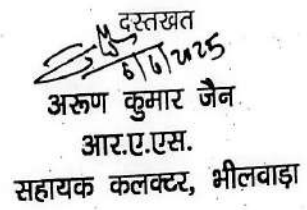 दस्तखत
6/6/2025
अरूण कुमार जैन
आर.ए.एस.
सहायक कलक्टर, भीलवाड़ा